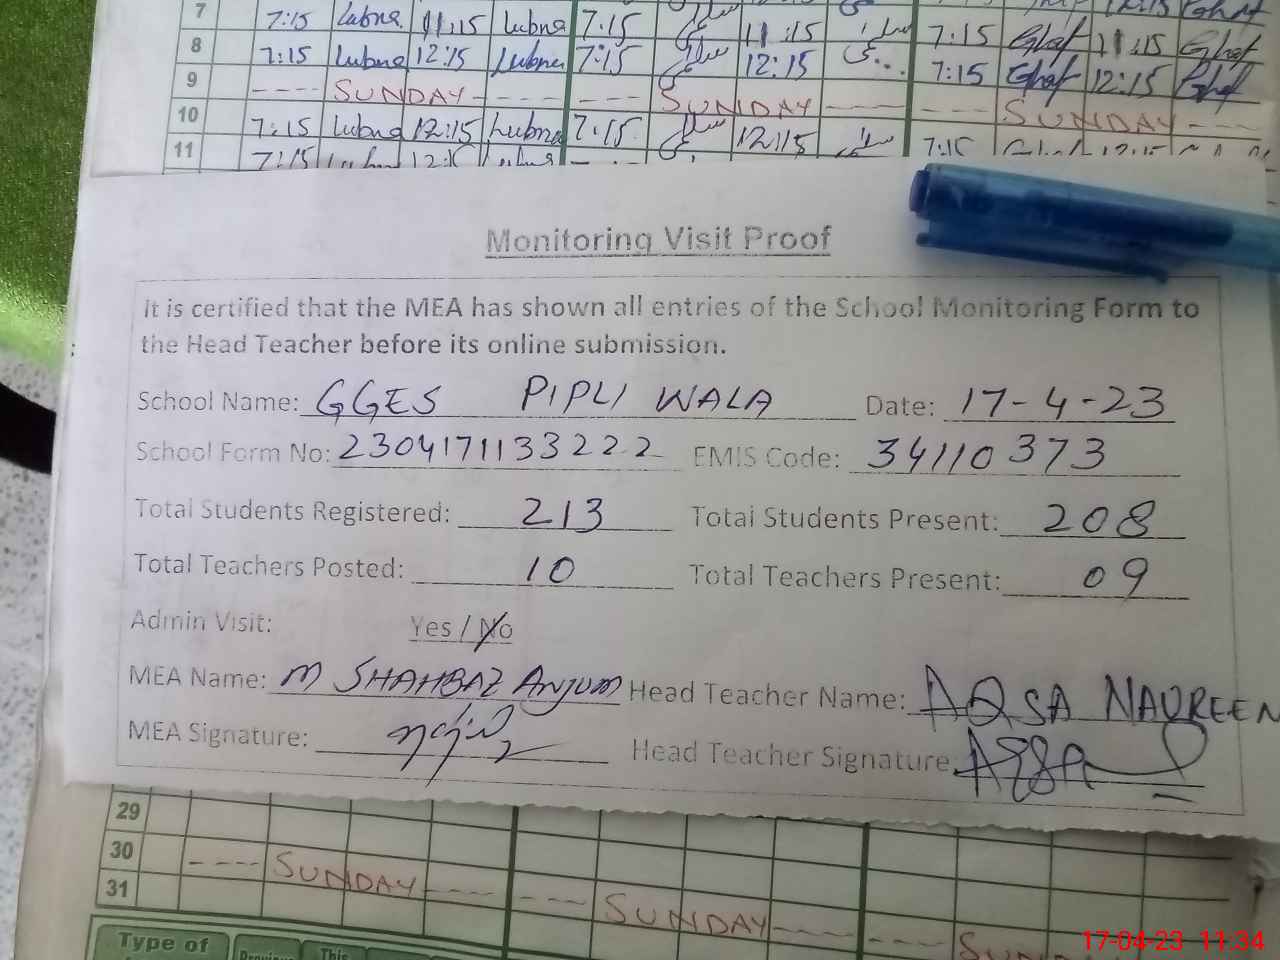 7 7:15 Lubna 11:15 Lubna 7:15 11:15 7:15 Ghaf 11:15 Ghaf
8 7:15 Lubna 12:15 Lubna 7:15 12:15 7:15 Ghaf 12:15 Ghaf
9 ---- SUNDAY ---- --- SUNDAY ---- ---- SUNDAY ---
10 7:15 Lubna 12:15 Lubna 7:15 12:15 7:15
11 7:15
Monitoring Visit Proof
It is certified that the MEA has shown all entries of the School Monitoring Form to
the Head Teacher before its online submission.
School Name: GGES PIPLI WALA Date: 17-4-23
School Form No: 2304171133222 EMIS Code: 34110373
Total Students Registered: 213 Total Students Present: 208
Total Teachers Posted: 10 Total Teachers Present: 09
Admin Visit: Yes / No
MEA Name: M SHAHBAZ ANJUM Head Teacher Name: AQSA NAUREEN
MEA Signature: Head Teacher Signature: AQSA
29
30 ---- SUNDAY ---- --- SUNDAY ---- ---- SUN
31
Type of
Previous
This
17-04-23 11:34